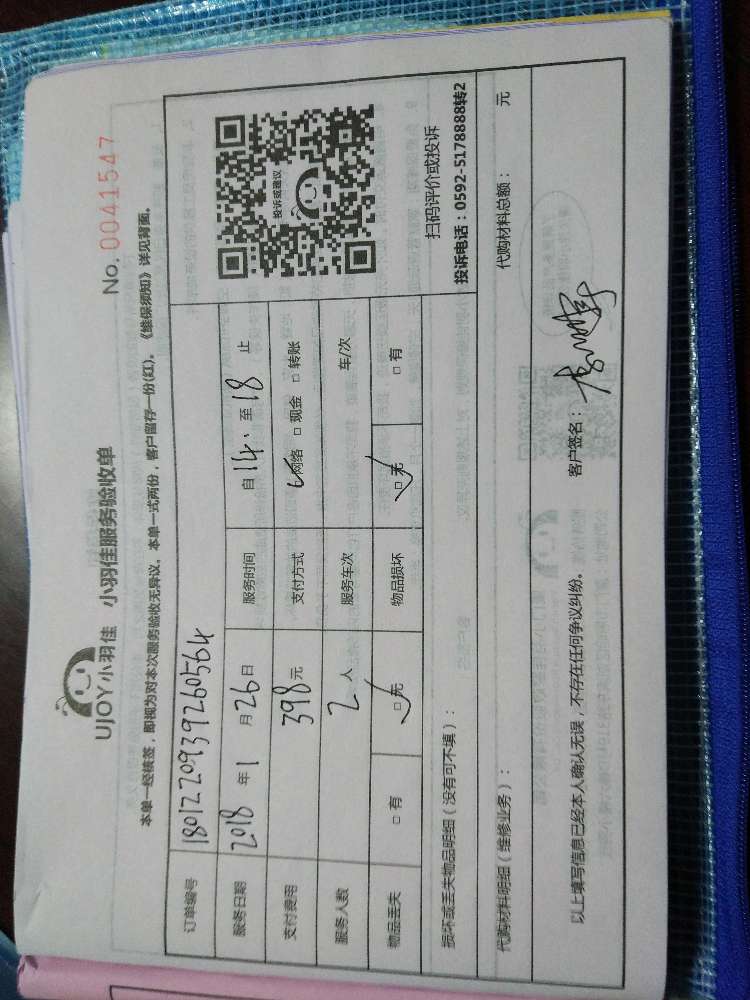 UJOY小羽佳 小羽佳服务验收单
No. 0041547
本单一经续签，即视为对本次服务验收无异议。本单一式两份，客户留存一份(红)。《维保须知》详见背面。
订单编号 18012209392605б4
服务日期 2018 年 1 月 26 日 服务时间 自 14. 至 18 止
支付费用 398 元 支付方式 ✓网络 □ 现金 □ 转账
服务人数 2 人 服务车次 车/次
物品丢失 □ 有 □ 无 ✓ 物品损坏 □ 无 ✓ □ 有
投诉或建议
扫码评价或投诉
投诉电话：0592-5178888转2
损坏或丢失物品明细（没有可不填）：
代购材料明细（维修业务）： 代购材料总额： 元
以上填写信息已经本人确认无误，不存在任何争议纠纷。 客户签名：